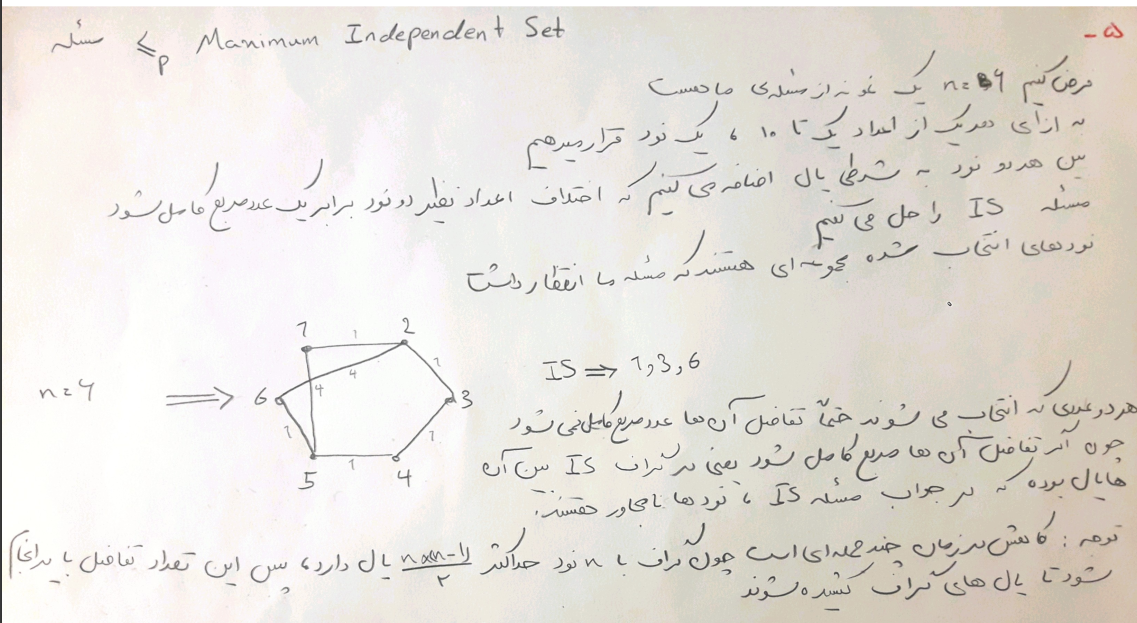 ۵-
مسئله ≤p Manimum Independent Set
فرض کنیم n=4 یک نمونه از مسئله‌ی ما هست
به ازای هر یک از اعداد یک تا ۱۰، یک نود قرار میدهیم
بین هر دو نود به شرطی یال اضافه می کنیم که اختلاف اعداد نظیر دو نود برابر یک عدد مربع کامل شود
مسئله IS را حل می کنیم
نودهای انتخاب شده مجموعه ای هستند که مسئله ما انتظار داشت
n=4 ⟹
1 1 2
4 4
6 1 3
1 1
5 1 4
IS ⟹ 1,3,6
هر دو عددی که انتخاب می شوند حتماً تفاضل آن ها عدد مربع کامل نمی شود
چون اگر تفاضل آن ها مربع کامل شود یعنی در گراف IS بین آن
ها یال بوده که در جواب مسئله IS، نودها نامجاور هستند.
توجه: کاهش در زمان چند جمله ای است چون گراف با n نود حداکثر n×(n-1)/۲ یال دارد، پس این تعداد تفاضل باید انجا
شود تا یال های گراف کشیده شوند